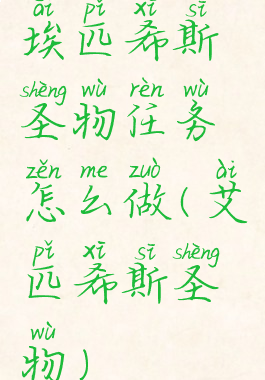 āi pǐ xī sī
埃匹希斯
shèng wù rèn wù
圣物任务
zěn me zuò ài
怎么做(艾
pǐ xī sī shèng
匹希斯圣
wù
物)